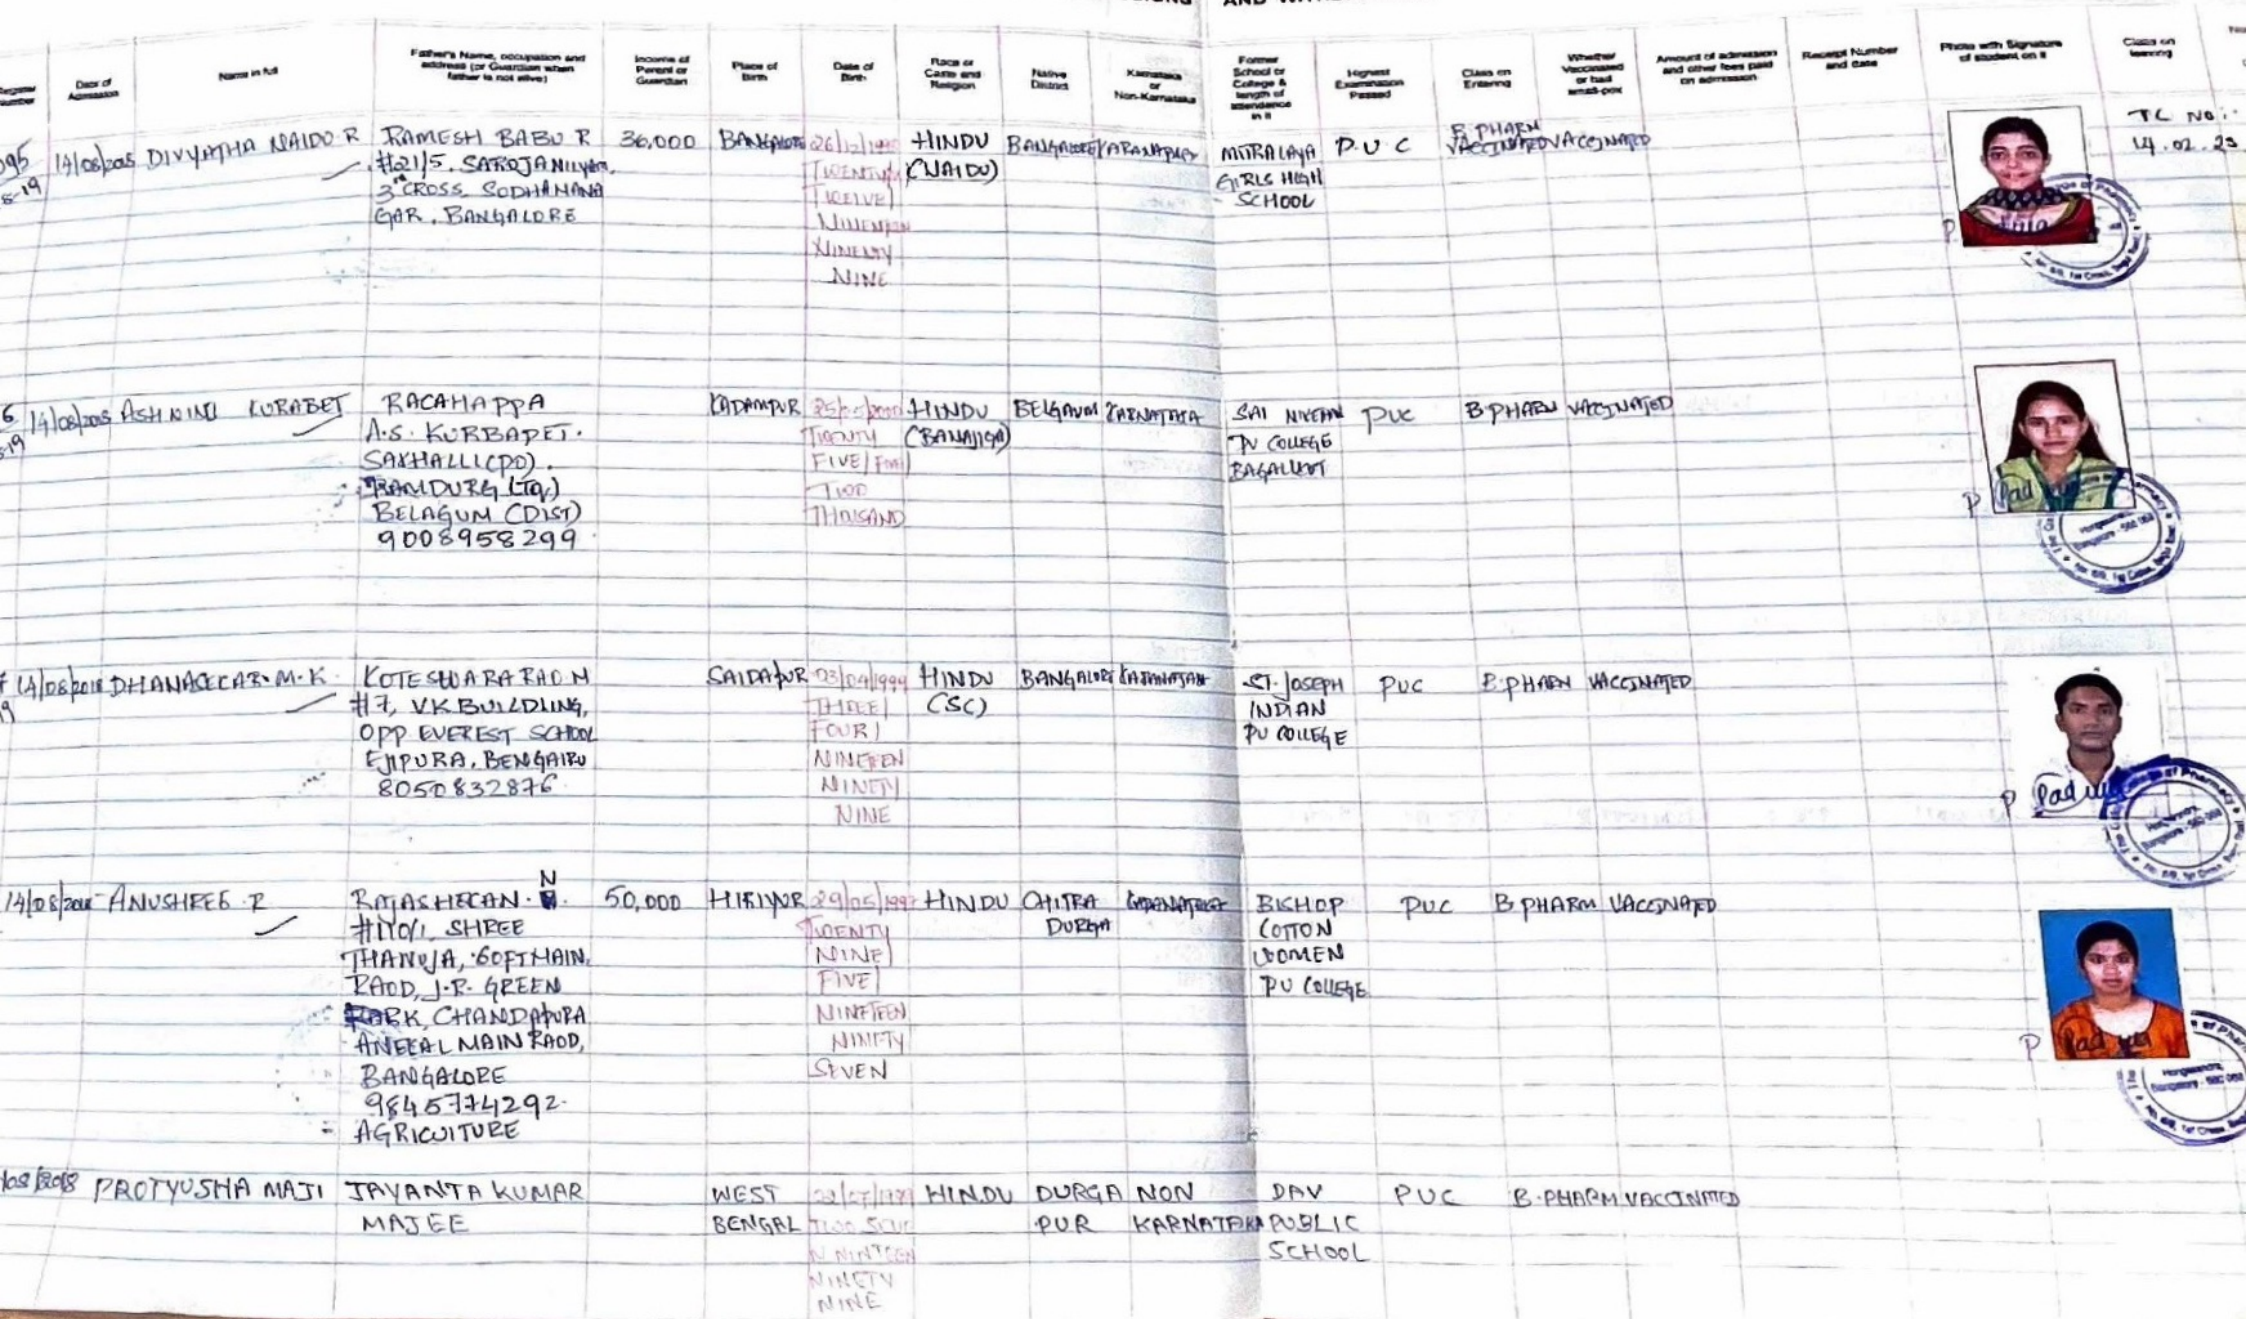 AND
Date of Admission
Name in full
Father's Name, occupation and address (or Guardian when father is not alive)
Income of Parent or Guardian
Place of Birth
Date of Birth
Race or Caste and Religion
Native District
Karnataka or Non-Karnataka
Former School or College & length of attendance in it
Highest Examination Passed
Class on Entering
Whether Vaccinated or had small-pox
Amount of admission and other fees paid on admission
Receipt Number and date
Photo with Signature of student on it
Class on leaving
DIVYATHA NAIDU R
RAMESH BABU R
#21/5. SAROJANILYAM,
3rd CROSS. SODHAMANA
GAR. BANGALORE
36,000
BANGALORE
TWENTY
TWELVE
NINETY
NINE
HINDU
(NAIDU)
BANGALORE
MITRALAYA
GIRLS HIGH
SCHOOL
P.U.C
B PHARM
VACCINATED VACCINATED
TC NO:
14.02.23
KURABET
RACAHAPPA
A.S. KURBAPET.
SAKHALLI (PO).
RAMDURG (TQ)
BELAGUM (DIST)
9008958299
KADAMPUR
TWENTY
FIVE/FIVE/
TWO
THOUSAND
HINDU
(BANAJIGA)
BELGAUM
KARNATAKA
SAI NIKETAN
PU COLLEGE
BAGALKOT
PUC
B PHARM
VACCINATED
DHANASECAR.M.K.
KOTESWARA RAO M
#7, VK BUILDLING,
OPP EVEREST SCHOOL
EJIPURA, BENGAIRU
8050832876
SAIDAPUR
03/04/1999
THREE/
FOUR/
NINETEEN
NINETY
NINE
HINDU
(SC)
BANGALORE
ST. JOSEPH
INDIAN
PU COLLEGE
PUC
B.PHARM
VACCINATED
ANUSHREE R
RAJASHECAN. N.
#170/1, SHREE
THANUJA, 60FT MAIN,
RAOD, J.R. GREEN
PARK, CHANDAPURA
ANEKAL MAIN RAOD,
BANGALORE
9845774292.
AGRICUITURE
50,000
HIRIYUR
29/05/1997
TWENTY
NINE/
FIVE/
NINETEEN
NINETY
SEVEN
HINDU
CHITRA
DURGA
BISHOP
COTTON
WOMEN
PU COLLEGE
PUC
B PHARM
VACCINATED
PROTYUSHA MAJI
JAYANTA KUMAR
MAJEE
WEST
BENGAL
NINTEEN
NINETY
NINE
HINDU
DURGA
PUR
NON
KARNATAKA
DAV
PUBLIC
SCHOOL
PUC
B.PHARM
VACCINATED